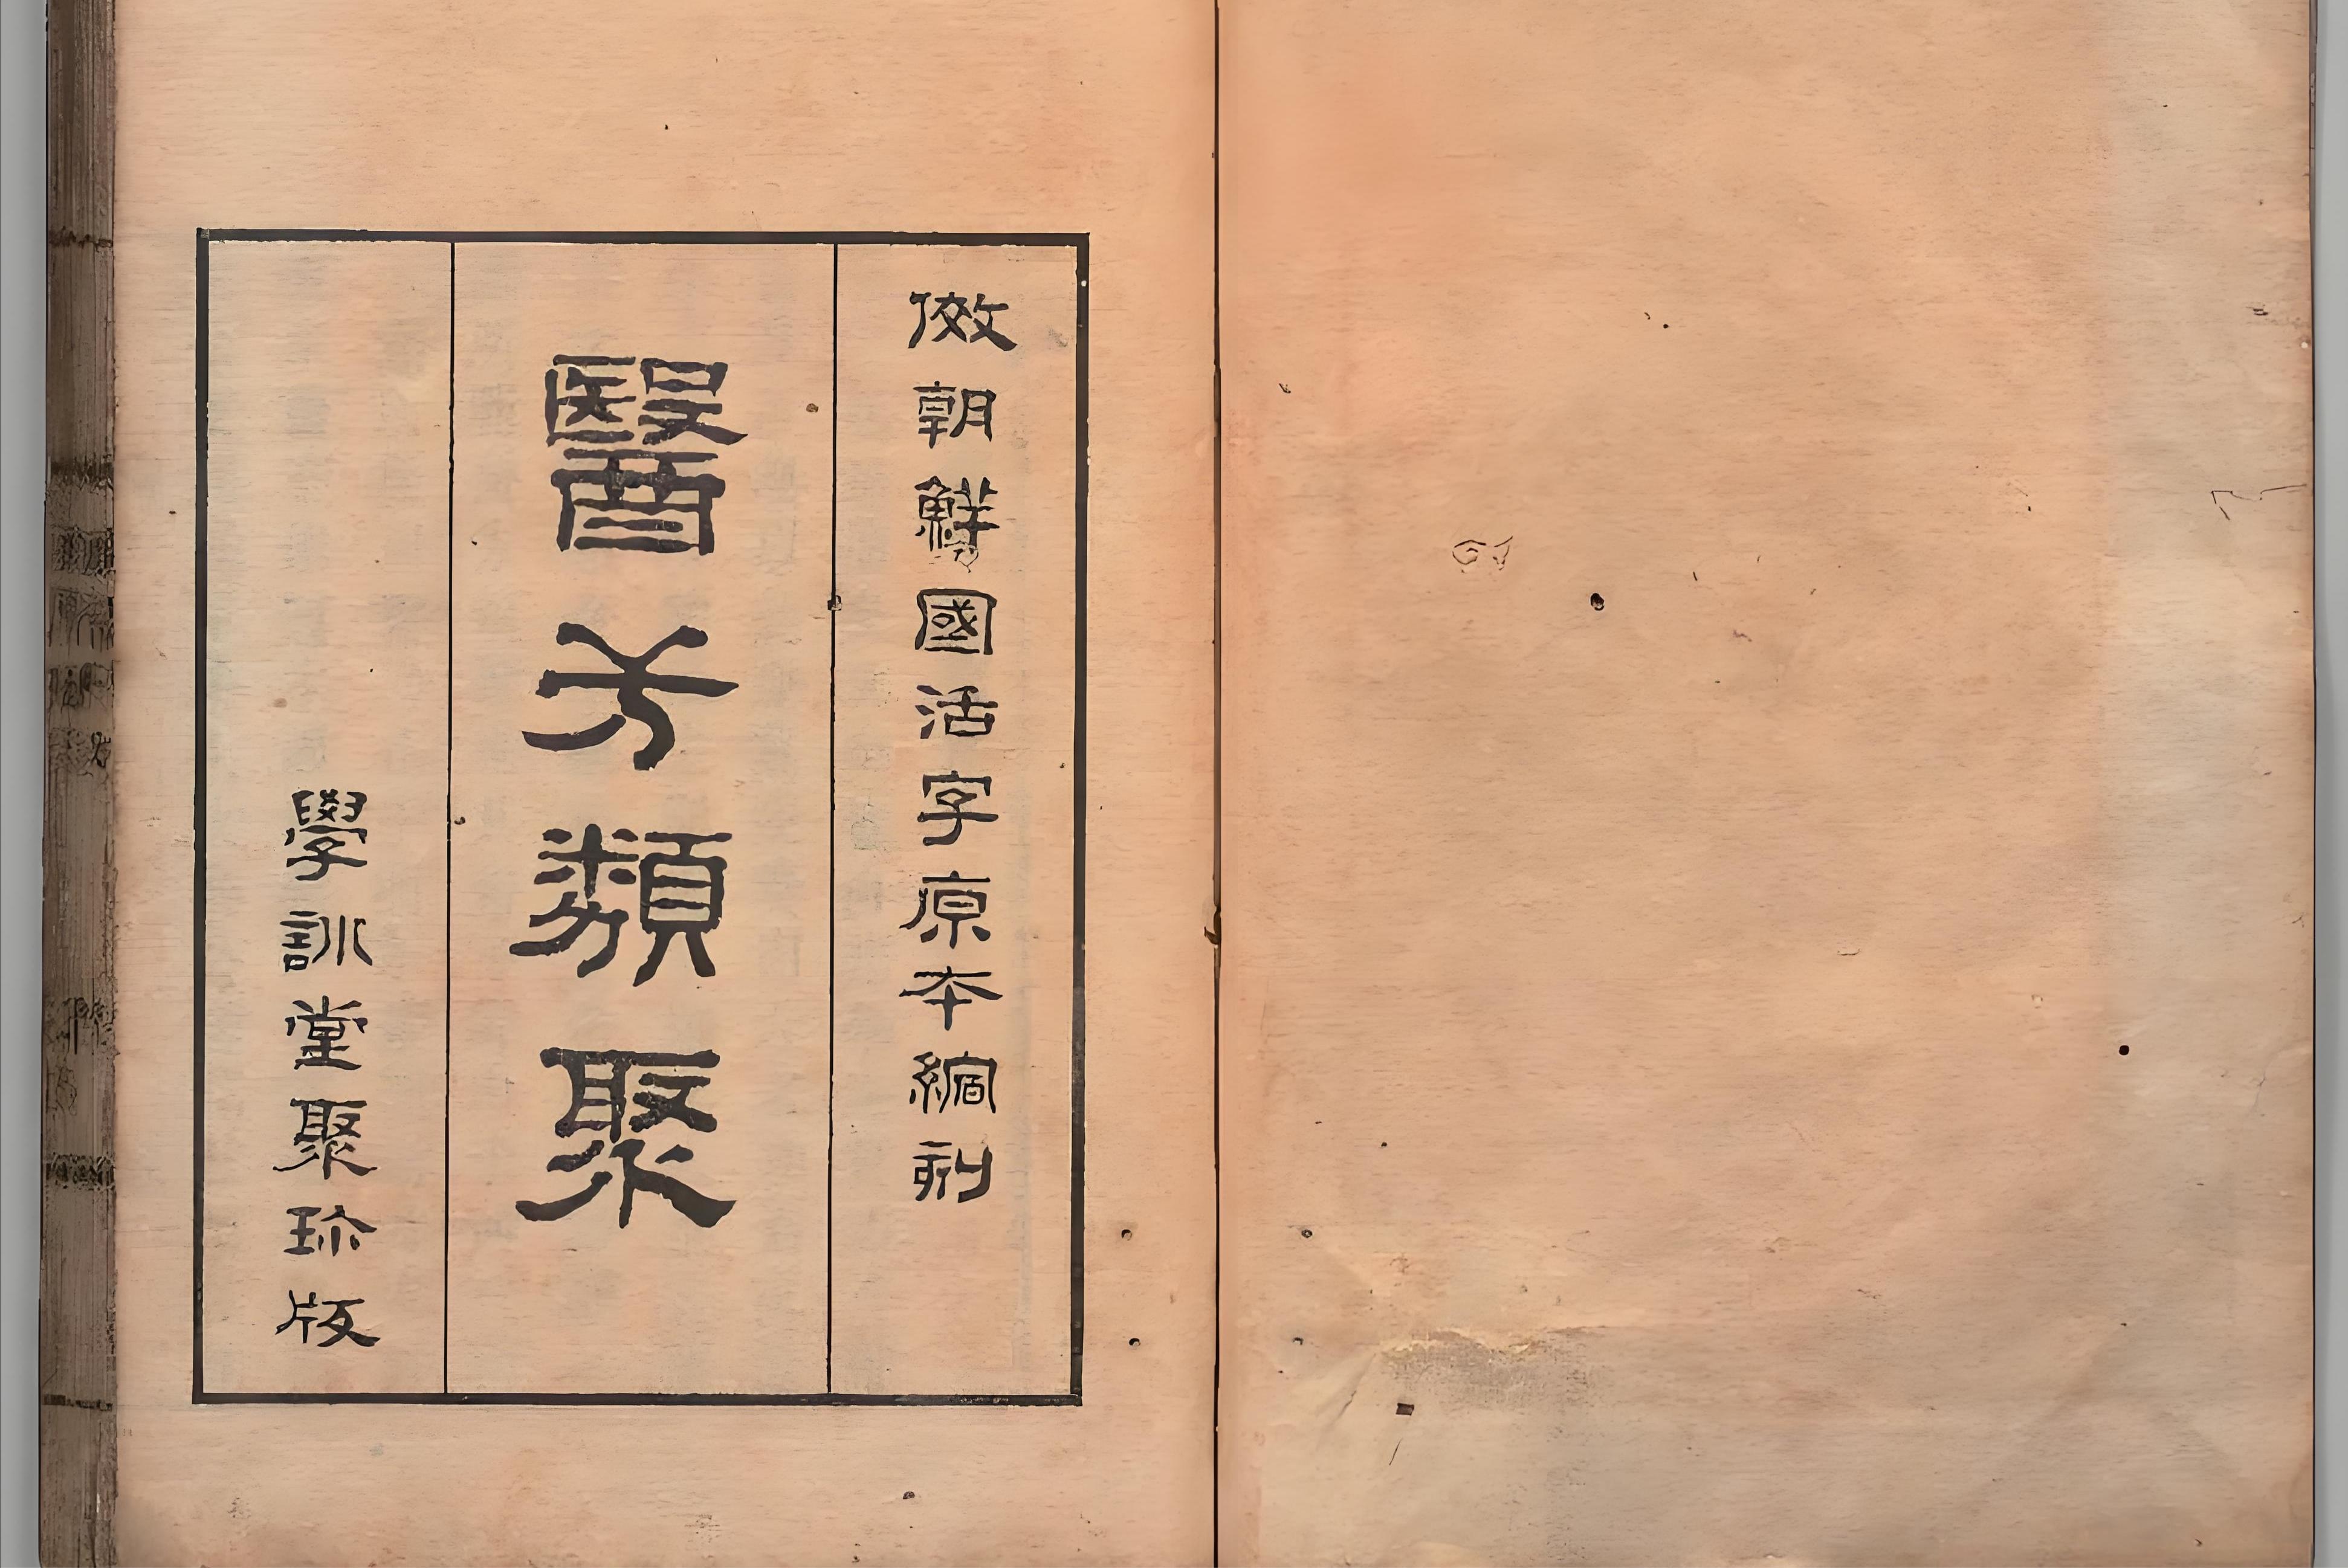 倣朝鮮國活字原本縮刻
醫方類聚
學訓堂聚珍版